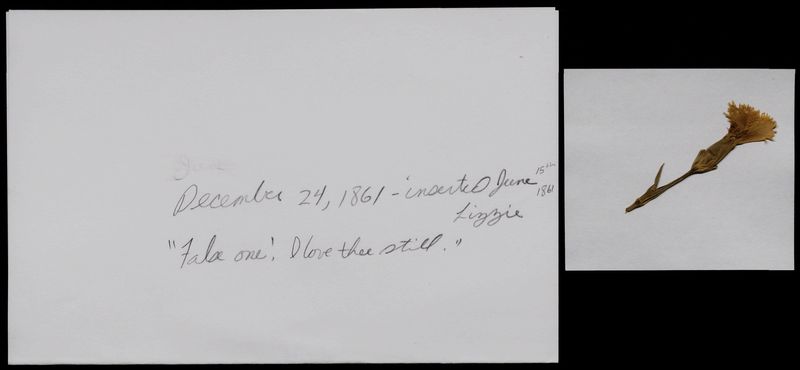 June
December 24, 1861 - inserted June 15th 1861
Lizzie
"False one! I love thee still."